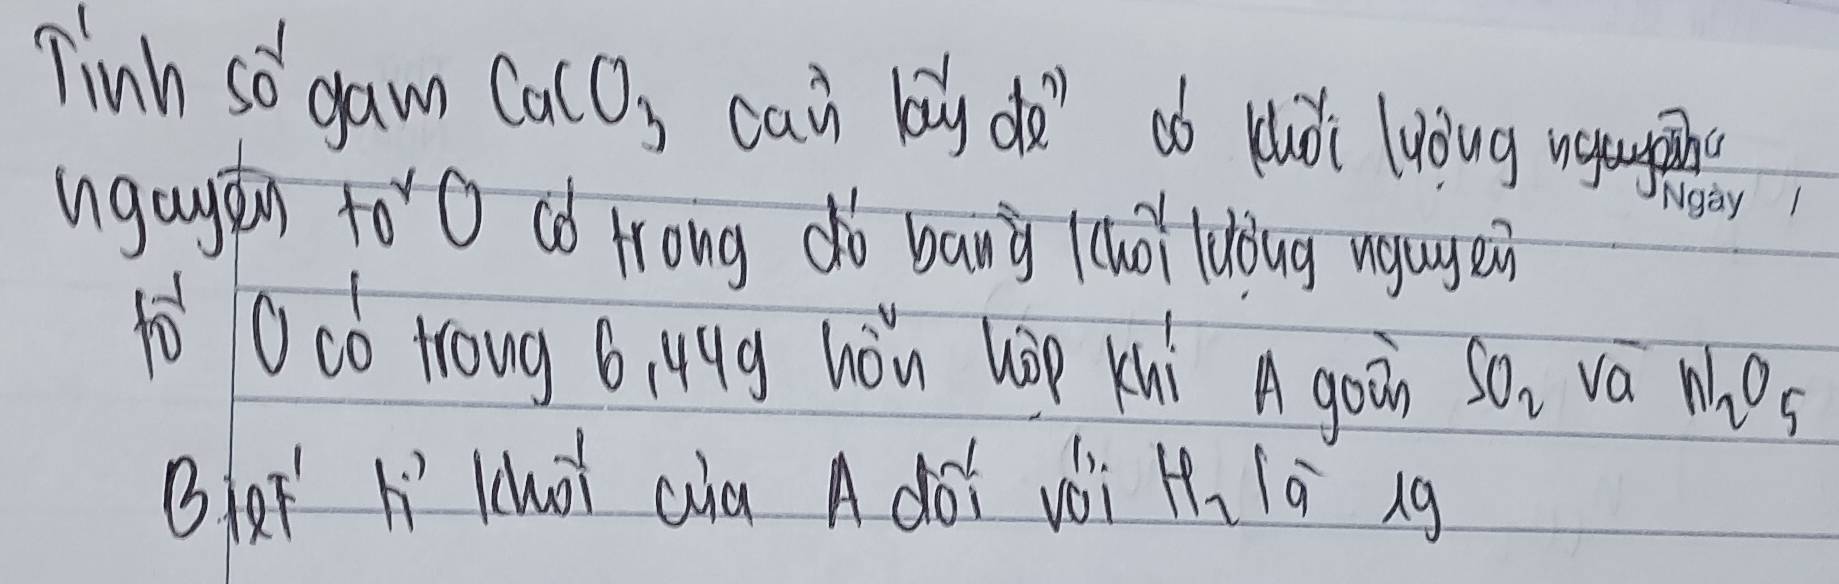 Tính số gam CaCO₃ cần lấy để có khối lượng
Ngày /
nguyên tố O có trong đó bằng khối lượng nguyên
tố O có trong 6,44g hỗn hợp khí A gồm SO₂ và N₂O₅
Biết tỉ khối của A đối với H₂ là 19